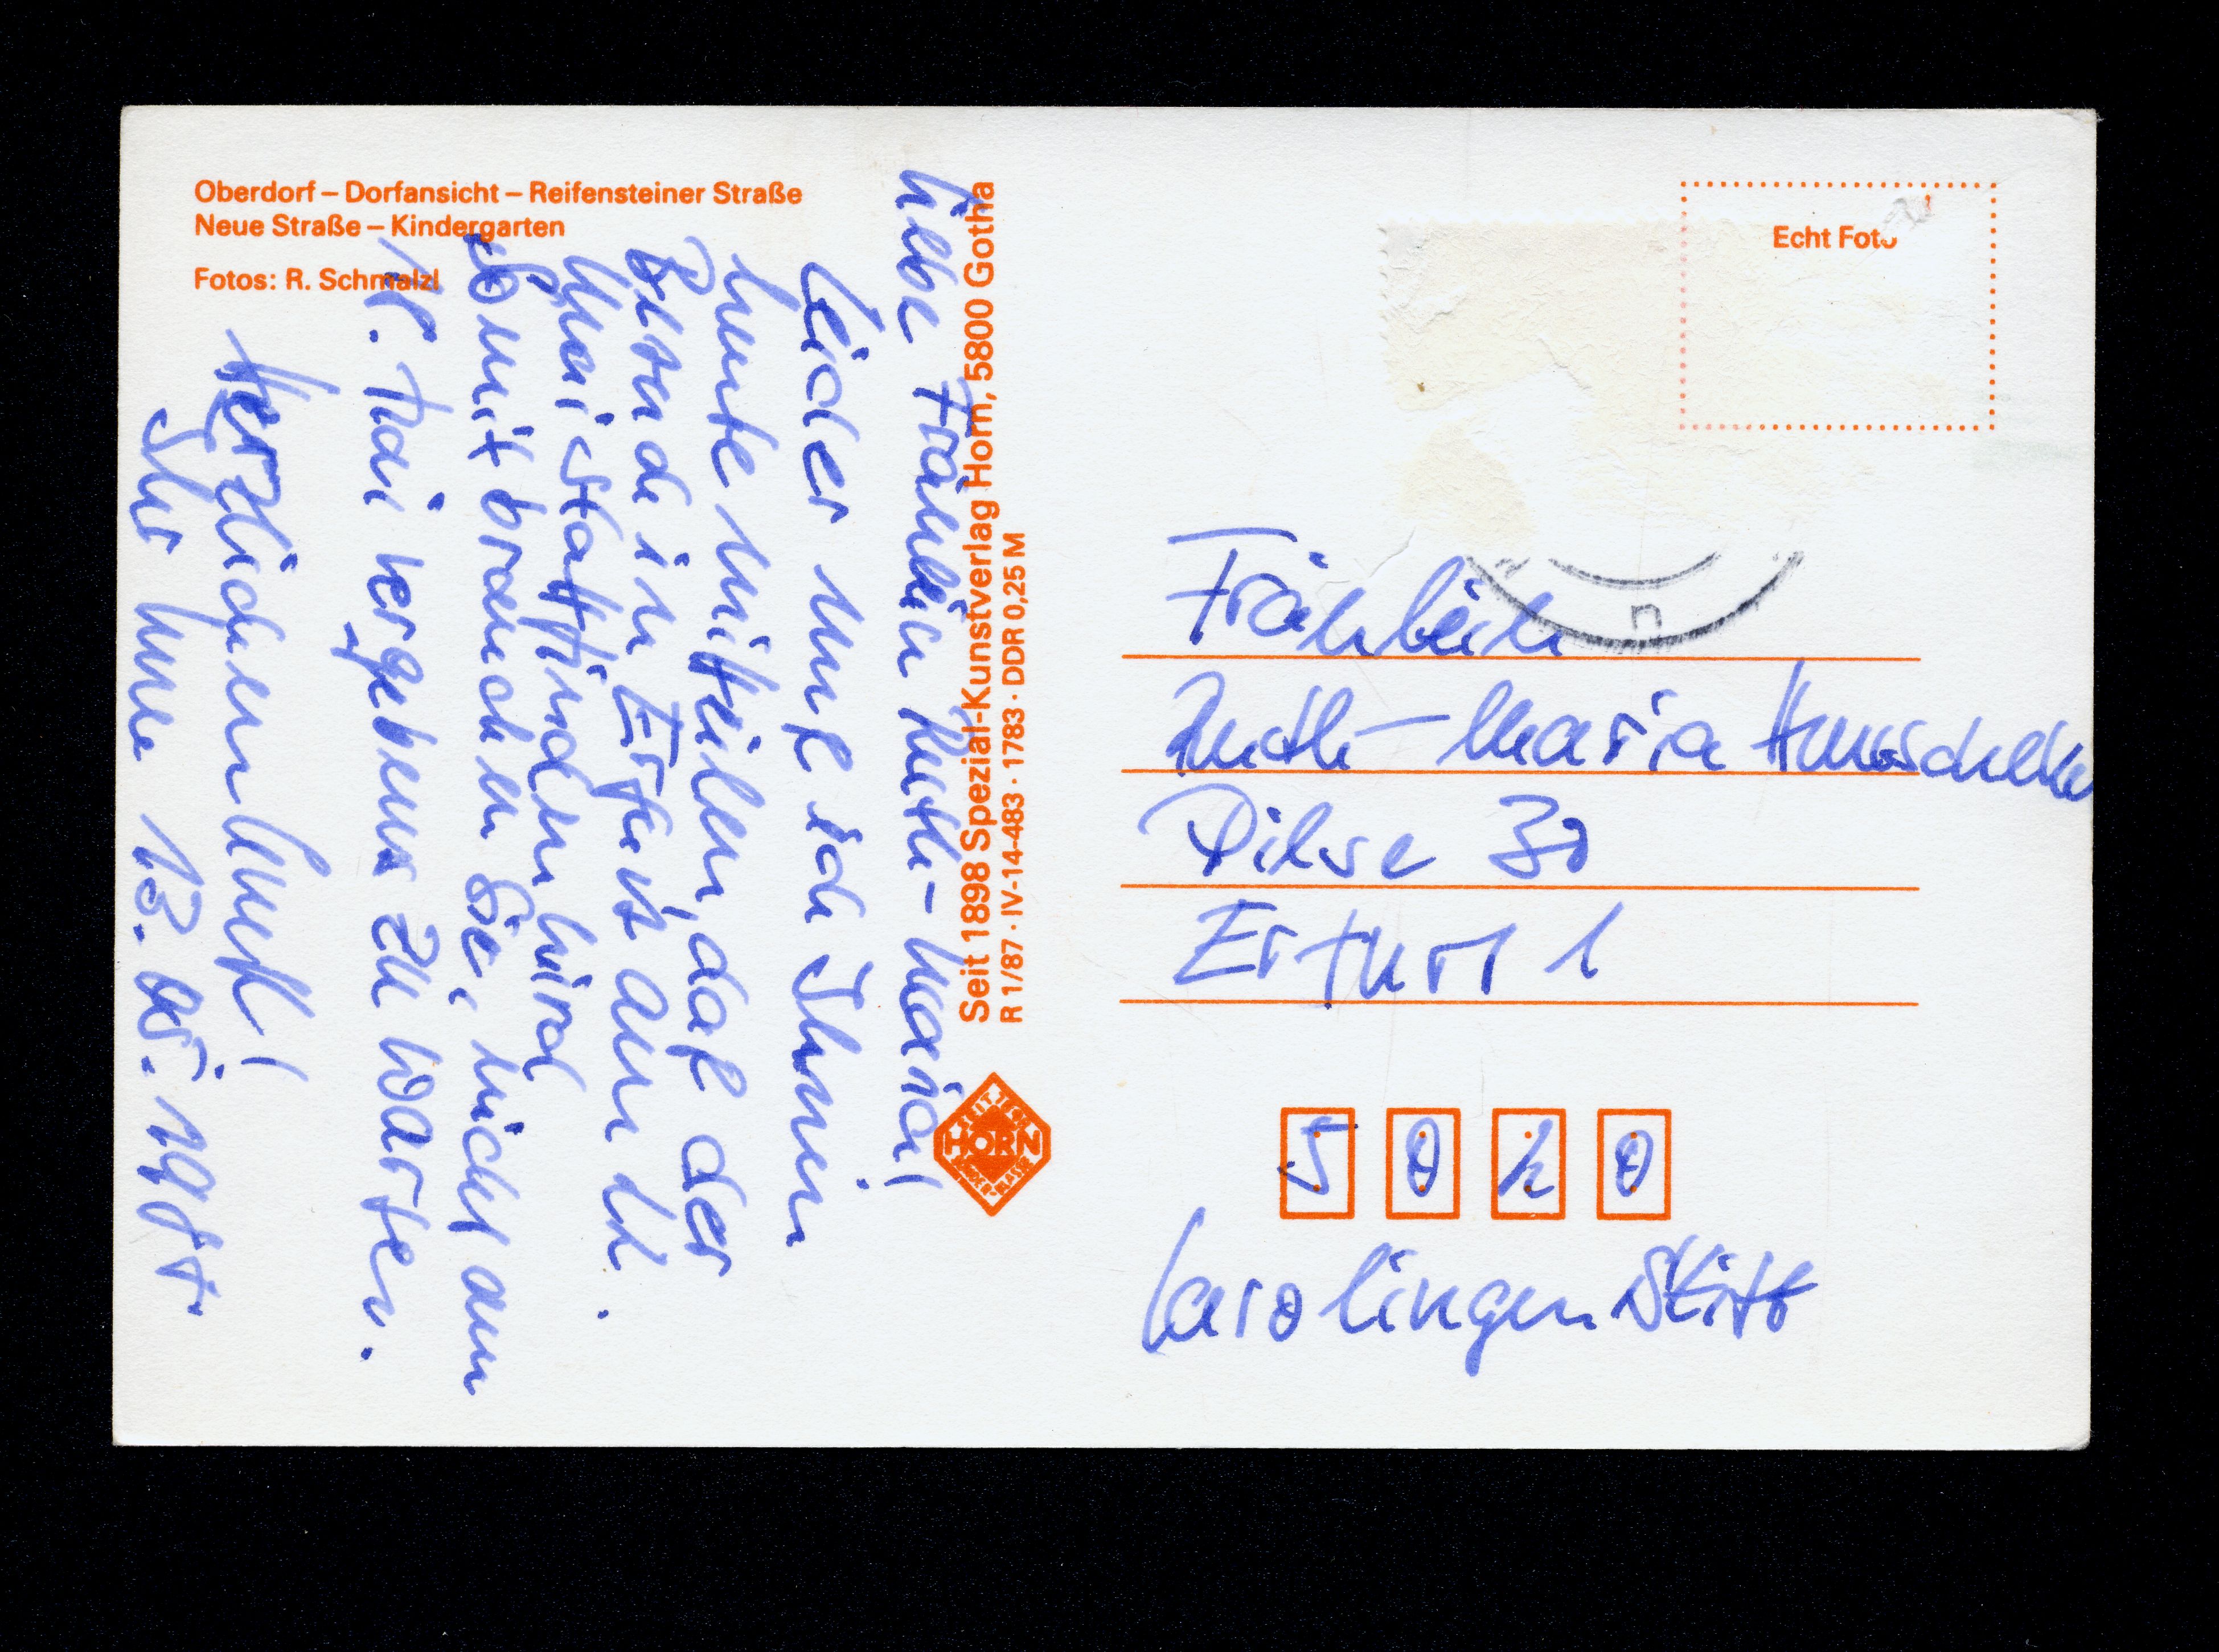 Oberdorf – Dorfansicht – Reifensteiner Straße
Neue Straße – Kindergarten
Fotos: R. Schmalzl
Liebe Fräulein Ruth-Maria!
Leider muß ich Ihnen
heute mitteilen, daß der
Besuch in Erfurt am
Mai stattfinden wird
Somit brauchen Sie, nicht am
18. Mai vergebens zu warten.
Herzlichen Gruß!
Ihr 13. 05. 1987.
Seit 1898 Spezial-Kunstverlag Horn, 5800 Gotha
R 1/87 · IV-14-483 · 1783 · DDR 0,25 M
HORN
Echt Foto
Fräulein
Ruth-Maria
Pilse 30
Erfurt 1
5020
Carolingen Stift